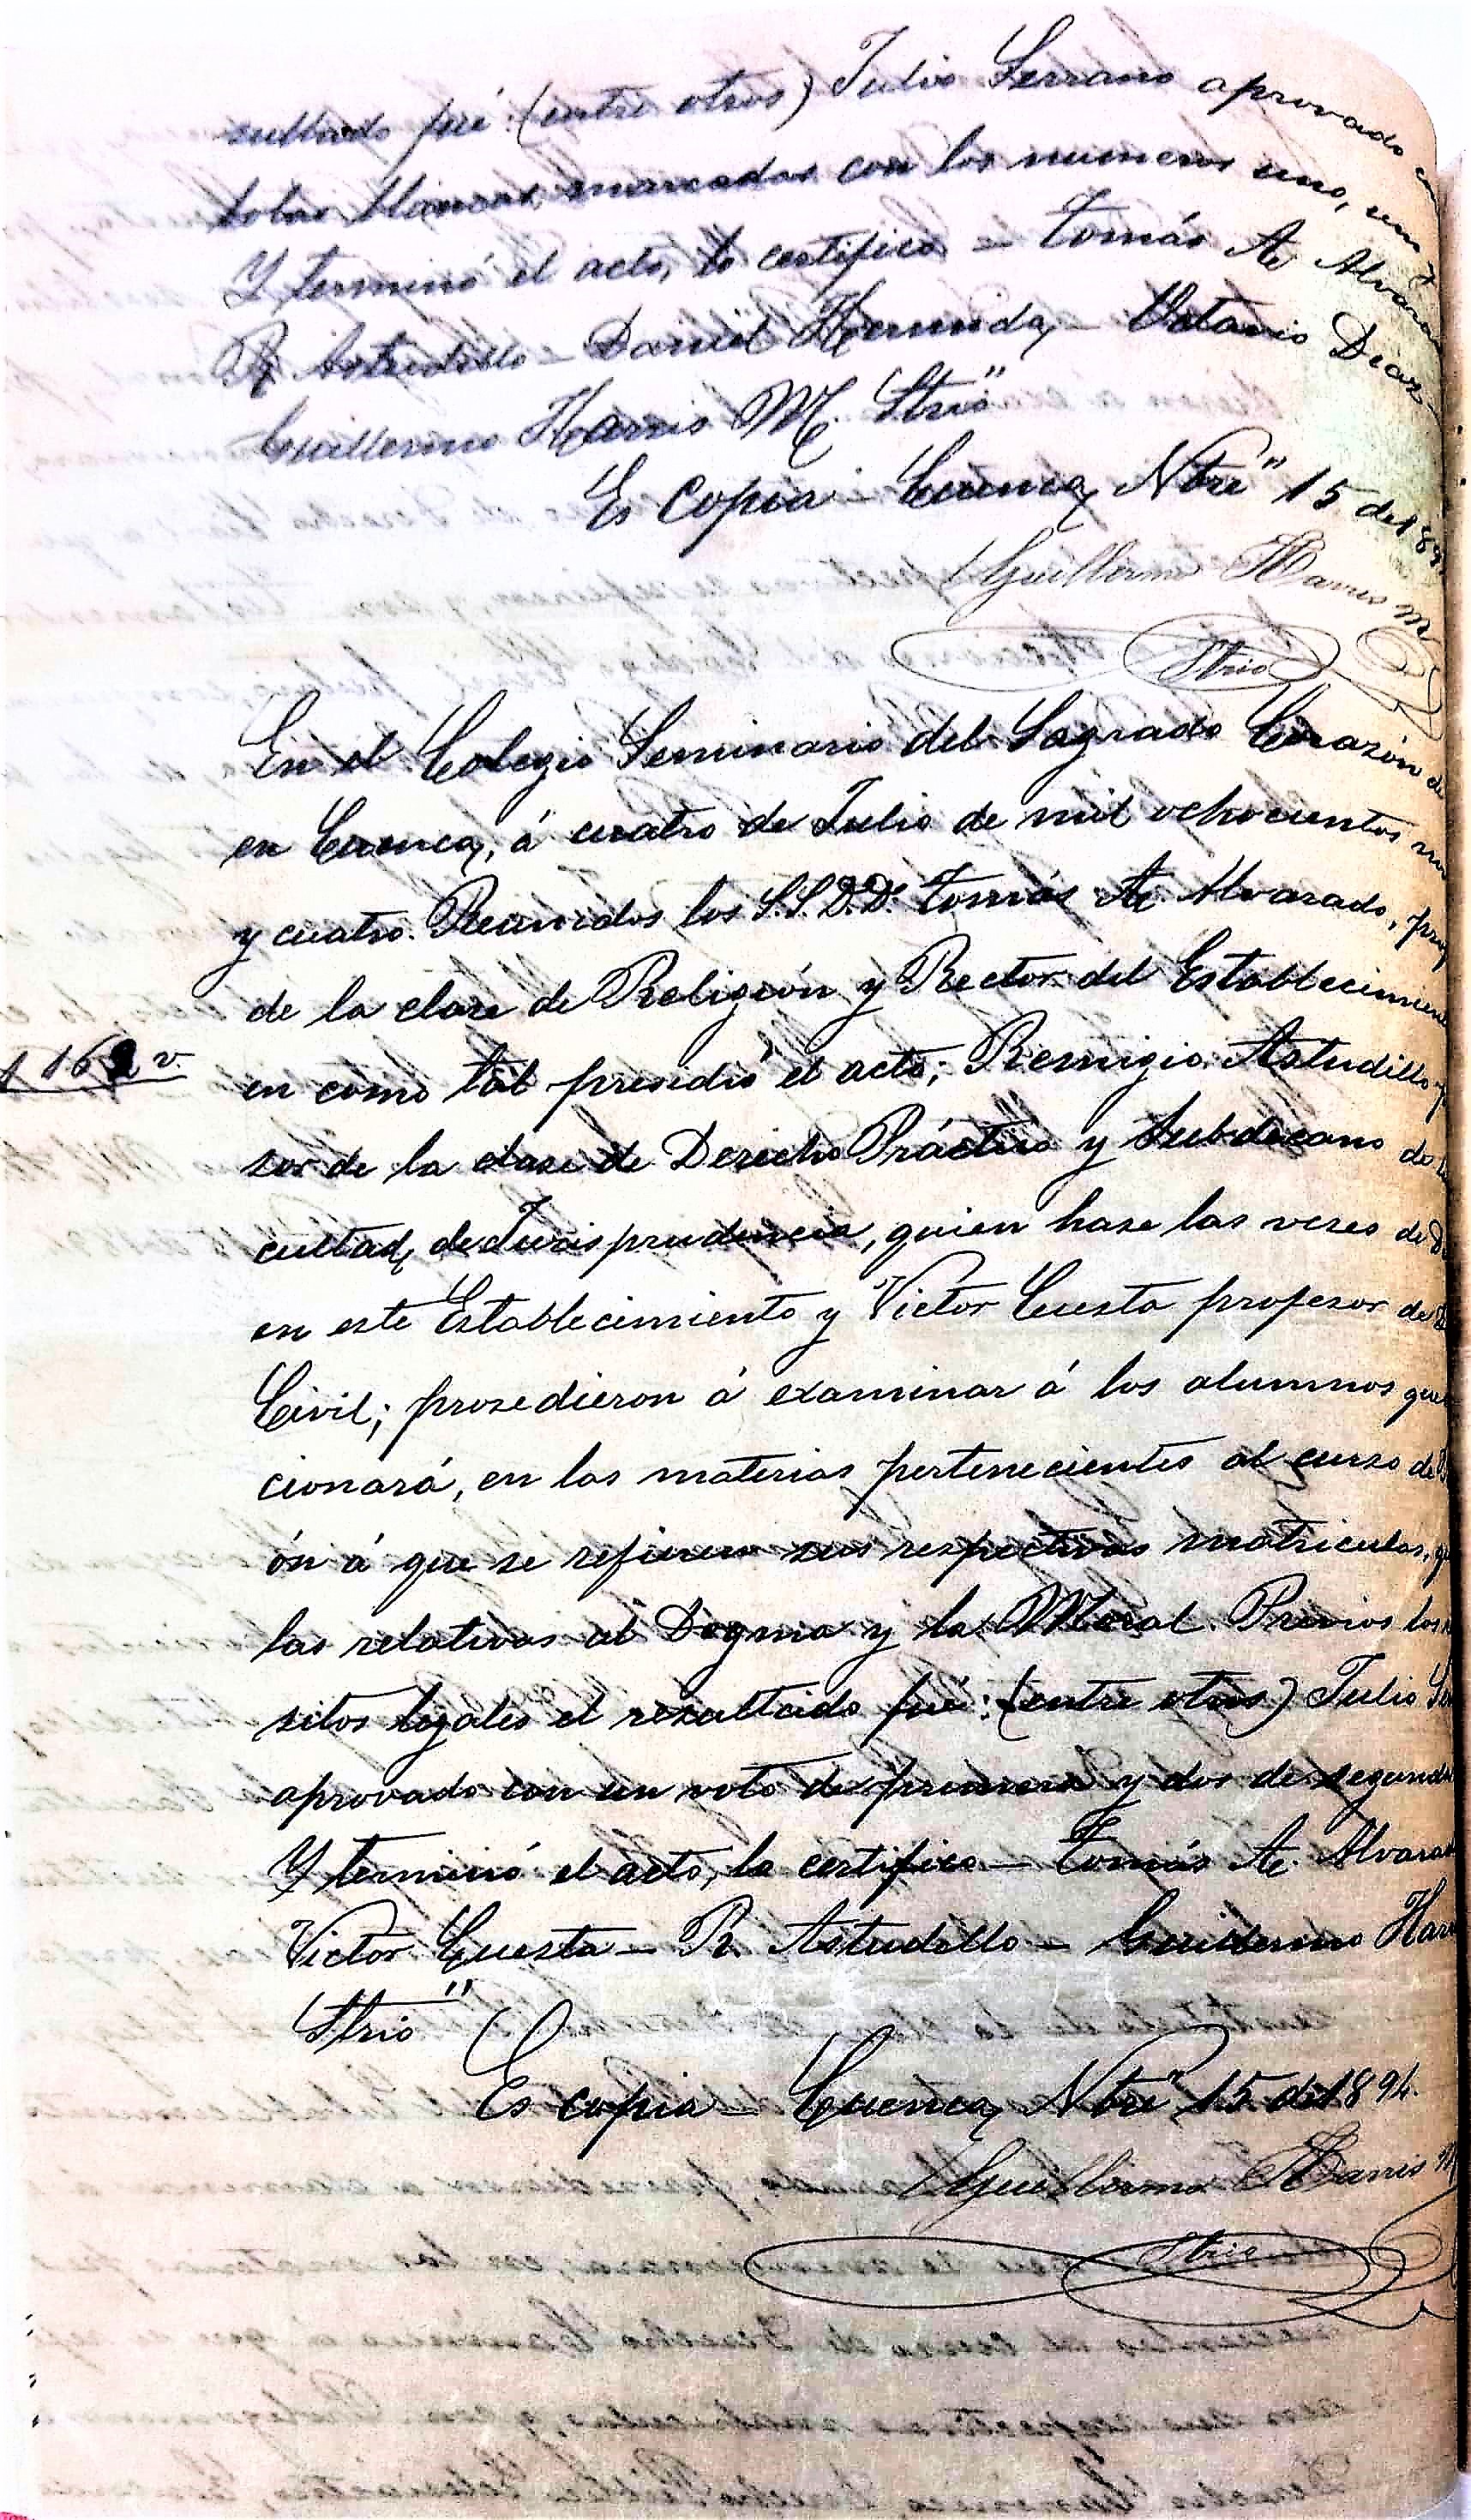 sultado fué: (entre otros) Julio Serrano aprovado
bolas blancas, marcadas con los numeros uno, uno y
Y terminó el acto, lo certifico — Tomás A. Alvara
R. Astudillo — Daniel Hermida — Octavio Diaz —
Guillermo Harris M. Strio"
Es copia — Cuenca, Nbre" 15 de 189
Guillermo Harris M
Strio
En el Colegio Seminario del Sagrado Corazón de
en Cuenca, á cuatro de Julio de mil ochocientos
y cuatro. Reunidos los S.S.D.D. Tomás A. Alvarado, prof
de la clase de Religión y Rector del Establecimien
en como tal presidió el acto; Remigio Astudillo
sor de la clase de Derecho Práctico y Subdecano de
cultad, de Jurisprudencia, quien hase las veses de
en este Establecimiento y Victor Cuesta profesor de
Civil; prosedieron á examinar á los alumnos que
cionará, en las materias pertenecientes al curso de
ón á que se refieren sus respectivas matriculas,
las relativas al Dogma y la Moral. Previos los
sitos legales el resultado fué: (entre otros) Julio Se
aprovado con un voto de primera y dos de segunda
Y terminó el acto, lo certifico — Tomás A. Alvara
Victor Cuesta — R. Astudillo — Guillermo Har
Strio"
Es copia — Cuenca, Nbre" 15 de 1894.
Guillermo Harris M
Strio
162 v.